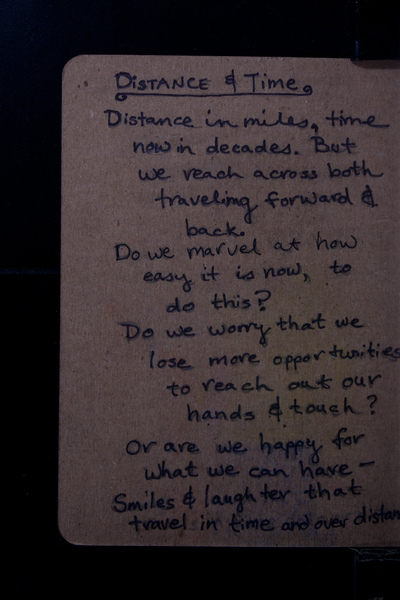 DISTANCE & Time
Distance in miles, time
now in decades. But
we reach across both
traveling forward &
back.
Do we marvel at how
easy it is now, to
do this?
Do we worry that we
lose more opportunities
to reach out our
hands & touch?
Or are we happy for
what we can have –
Smiles & laughter that
travel in time and over distan